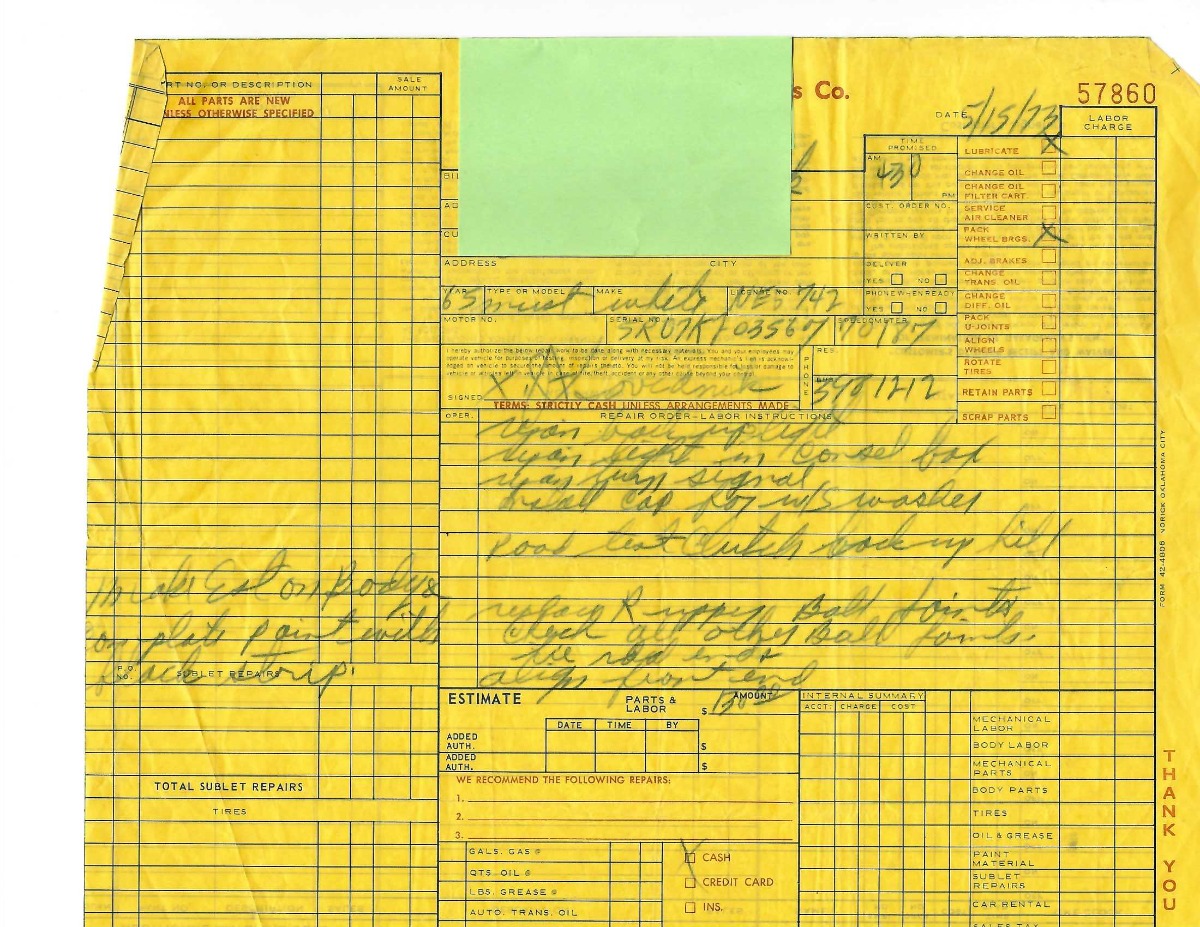 s Co.
57860
DATE 5/15/73
LABOR CHARGE
RT NO. OR DESCRIPTION
SALE AMOUNT
ALL PARTS ARE NEW
NLESS OTHERWISE SPECIFIED
TIME PROMISED
AM 430 PM
CUST. ORDER NO.
WRITTEN BY
DELIVER
YES NO
PHONE WHEN READY
YES NO
LUBRICATE X
CHANGE OIL
CHANGE OIL FILTER CART.
SERVICE AIR CLEANER
PACK WHEEL BRGS. X
ADJ. BRAKES
CHANGE TRANS. OIL
CHANGE DIFF. OIL
PACK U-JOINTS
ALIGN WHEELS
ROTATE TIRES
RETAIN PARTS
SCRAP PARTS
BI
AD
CU
ADDRESS CITY
YEAR TYPE OR MODEL MAKE LICENSE NO.
65 must white 742
MOTOR NO. SERIAL NO. SPEEDOMETER
I hereby authorize the below repair work to be done along with necessary materials. You and your employees may
operate vehicle for purposes of testing, inspection or delivery at my risk. An express mechanic's lien is acknow-
ledged on vehicle to secure the amount of repairs thereto. You will not be held responsible for loss or damage to
vehicle or articles left in vehicle in case of fire, theft, accident or any other cause beyond your control.
SIGNED X
PHONE
RES.
BUS.
1212
TERMS: STRICTLY CASH UNLESS ARRANGEMENTS MADE
OPER. REPAIR ORDER-LABOR INSTRUCTIONS
light in consel box
turn signal
install cap for w/s washer
Road test clutch back up hill
replace R upper Ball Joints
check all other Ball Joints.
tie rod ends
align front end
make Est on Body &
complete paint with
black strip
P.O. NO. SUBLET REPAIRS
TOTAL SUBLET REPAIRS
TIRES
ESTIMATE PARTS & LABOR $ AMOUNT
DATE TIME BY
ADDED AUTH. $
ADDED AUTH. $
WE RECOMMEND THE FOLLOWING REPAIRS:
1.
2.
3.
GALS. GAS @
QTS. OIL @
LBS. GREASE @
AUTO. TRANS. OIL
X CASH
CREDIT CARD
INS.
INTERNAL SUMMARY
ACCT. CHARGE COST
MECHANICAL LABOR
BODY LABOR
MECHANICAL PARTS
BODY PARTS
TIRES
OIL & GREASE
PAINT MATERIAL
SUBLET REPAIRS
CAR RENTAL
SALES TAX
FORM 42-4806 NORICK OKLAHOMA CITY
THANK YOU